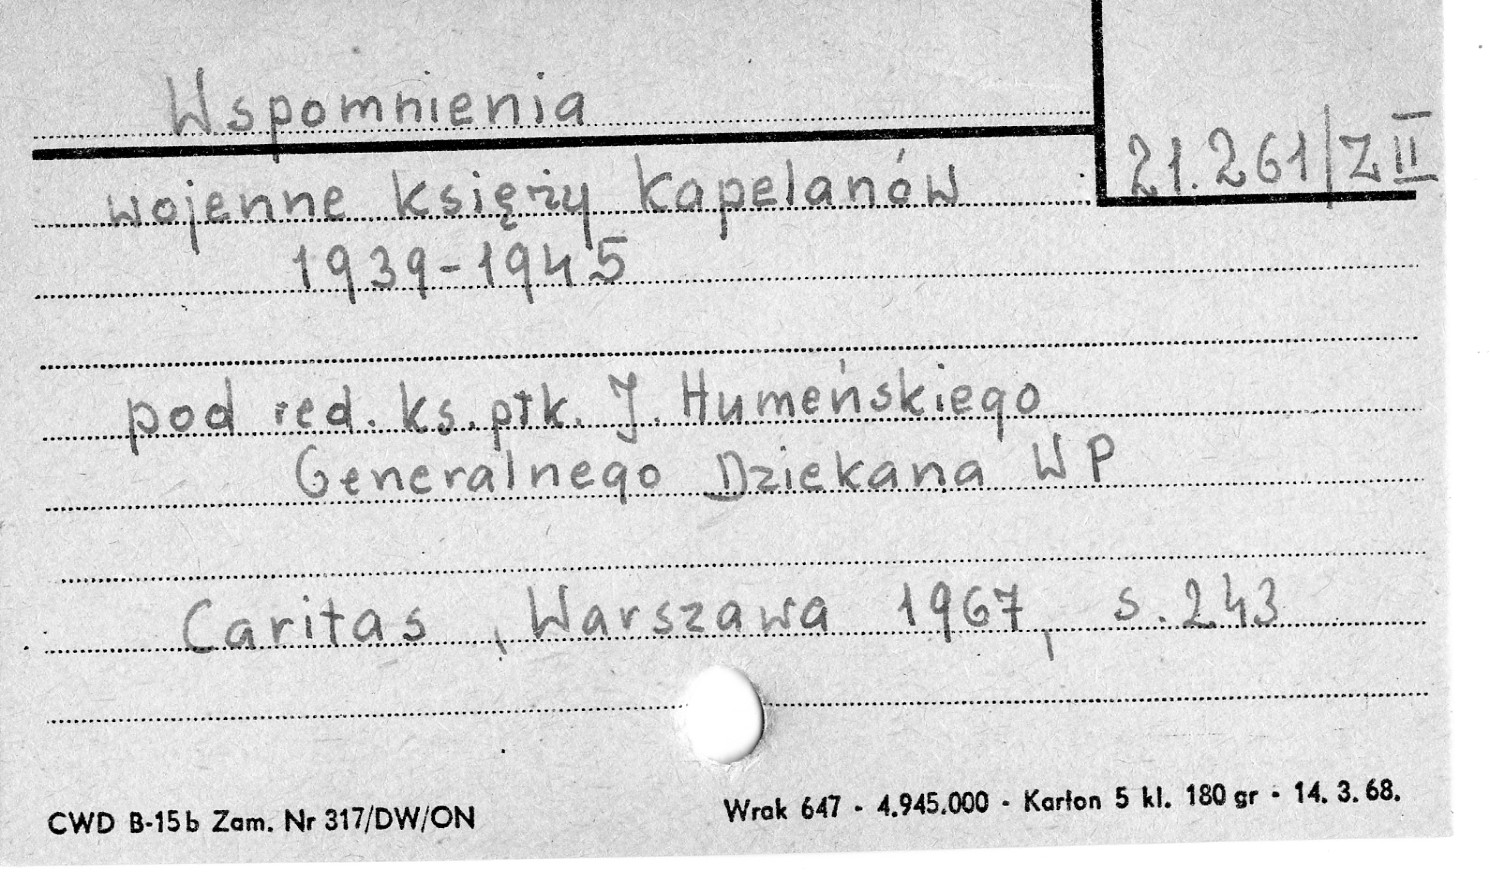 Wspomnienia
21.261/Z II
wojenne księży kapelanów
1939-1945
pod red. ks. płk. J. Humeńskiego
Generalnego Dziekana WP
Caritas, Warszawa 1967, s. 243
CWD B-15b Zam. Nr 317/DW/ON
Wrak 647 - 4.945.000 - Karton 5 kl. 180 gr - 14. 3. 68.